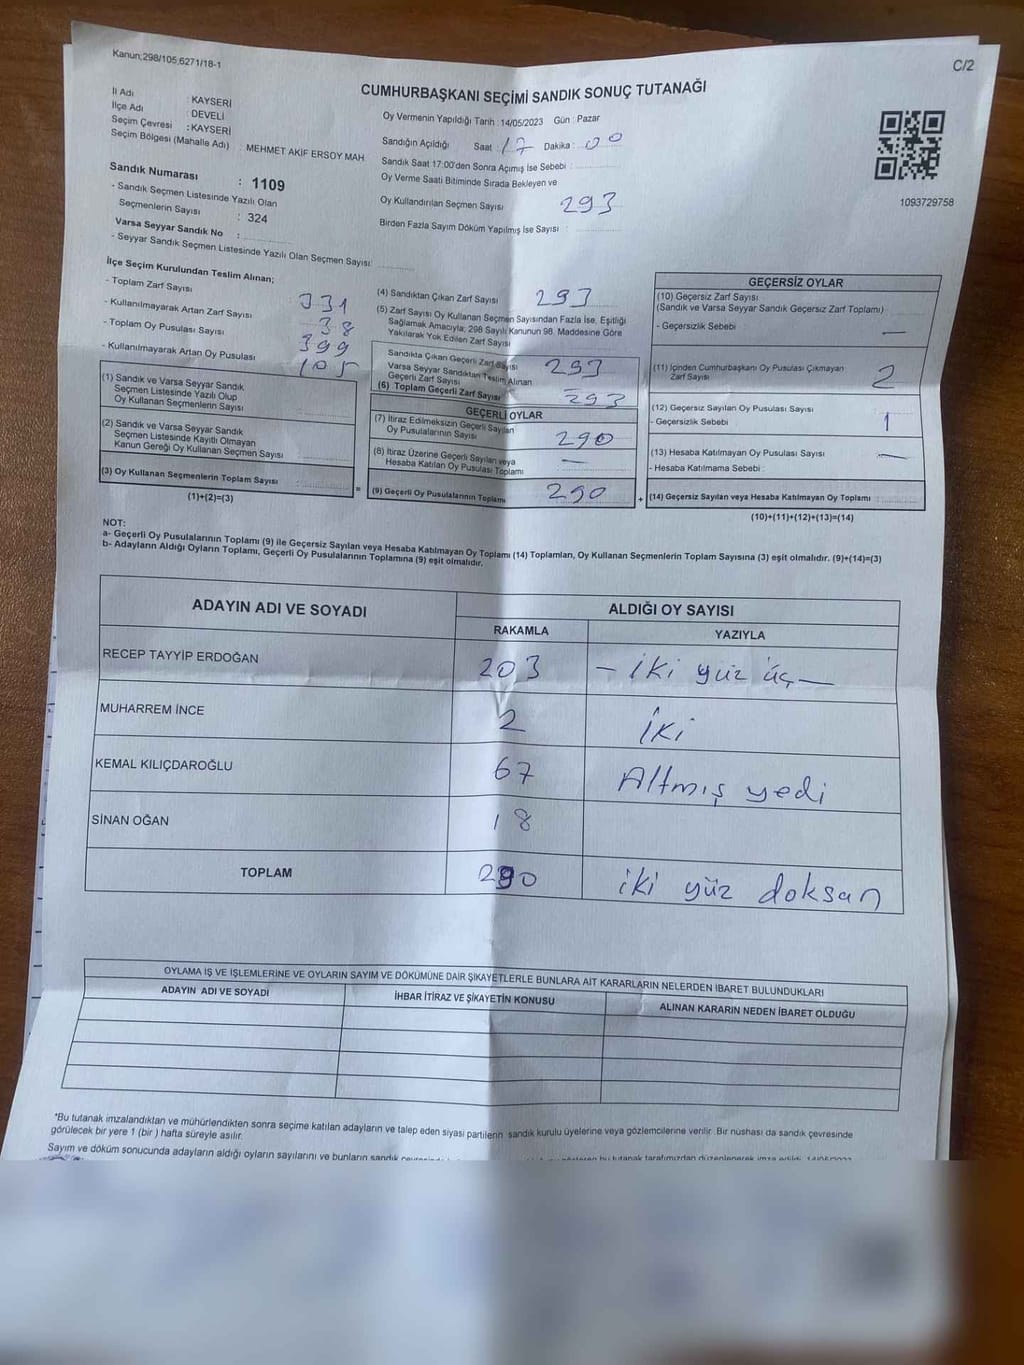 Kanun;298/105,6271/18-1
C/2
CUMHURBAŞKANI SEÇİMİ SANDIK SONUÇ TUTANAĞI
İl Adı : KAYSERİ
İlçe Adı : DEVELİ
Seçim Çevresi : KAYSERİ
Seçim Bölgesi (Mahalle Adı) : MEHMET AKİF ERSOY MAH
Sandık Numarası : 1109
- Sandık Seçmen Listesinde Yazılı Olan
Seçmenlerin Sayısı : 324
Varsa Seyyar Sandık No :
- Seyyar Sandık Seçmen Listesinde Yazılı Olan Seçmen Sayısı:
Oy Vermenin Yapıldığı Tarih : 14/05/2023 Gün : Pazar
Sandığın Açıldığı Saat 17 Dakika : 00
Sandık Saat 17:00'den Sonra Açımış İse Sebebi :
Oy Verme Saati Bitiminde Sırada Bekleyen ve
Oy Kullandırılan Seçmen Sayısı 293
Birden Fazla Sayım Döküm Yapılmış İse Sayısı :
1093729758
İlçe Seçim Kurulundan Teslim Alınan;
- Toplam Zarf Sayısı 331
- Kullanılmayarak Artan Zarf Sayısı 38
- Toplam Oy Pusulası Sayısı 399
- Kullanılmayarak Artan Oy Pusulası 105
(1) Sandık ve Varsa Seyyar Sandık
Seçmen Listesinde Yazılı Olup
Oy Kullanan Seçmenlerin Sayısı
(2) Sandık ve Varsa Seyyar Sandık
Seçmen Listesinde Kayıtlı Olmayan
Kanun Gereği Oy Kullanan Seçmen Sayısı :
(3) Oy Kullanan Seçmenlerin Toplam Sayısı :
(1)+(2)=(3)
=
(4) Sandıktan Çıkan Zarf Sayısı 293
(5) Zarf Sayısı Oy Kullanan Seçmen Sayısından Fazla İse, Eşitliği
Sağlamak Amacıyla; 298 Sayılı Kanunun 98. Maddesine Göre
Yakılarak Yok Edilen Zarf Sayısı
Sandıkta Çıkan Geçerli Zarf Sayısı 293
Varsa Seyyar Sandıktan Teslim Alınan
Geçerli Zarf Sayısı
(6) Toplam Geçerli Zarf Sayısı 293
GEÇERLİ OYLAR
(7) İtiraz Edilmeksizin Geçerli Sayılan
Oy Pusulalarının Sayısı 290
(8) İtiraz Üzerine Geçerli Sayılan veya
Hesaba Katılan Oy Pusulası Toplamı —
(9) Geçerli Oy Pusulalarının Toplamı 290
+
GEÇERSİZ OYLAR
(10) Geçersiz Zarf Sayısı
(Sandık ve Varsa Seyyar Sandık Geçersiz Zarf Toplamı) :
- Geçersizlik Sebebi —
(11) İçinden Cumhurbaşkanı Oy Pusulası Çıkmayan
Zarf Sayısı 2
(12) Geçersiz Sayılan Oy Pusulası Sayısı 1
- Geçersizlik Sebebi
(13) Hesaba Katılmayan Oy Pusulası Sayısı —
- Hesaba Katılmama Sebebi :
(14) Geçersiz Sayılan veya Hesaba Katılmayan Oy Toplamı :
(10)+(11)+(12)+(13)=(14)
NOT:
a- Geçerli Oy Pusulalarının Toplamı (9) ile Geçersiz Sayılan veya Hesaba Katılmayan Oy Toplamı (14) Toplamları, Oy Kullanan Seçmenlerin Toplam Sayısına (3) eşit olmalıdır. (9)+(14)=(3)
b- Adayların Aldığı Oyların Toplamı, Geçerli Oy Pusulalarının Toplamına (9) eşit olmalıdır.
ADAYIN ADI VE SOYADI ALDIĞI OY SAYISI
RAKAMLA YAZIYLA
RECEP TAYYİP ERDOĞAN 203 – İki yüz üç —
MUHARREM İNCE 2 İki
KEMAL KILIÇDAROĞLU 67 Altmış yedi
SİNAN OĞAN 18
TOPLAM 290 iki yüz doksan
OYLAMA İŞ VE İŞLEMLERİNE VE OYLARIN SAYIM VE DÖKÜMÜNE DAİR ŞİKAYETLERLE BUNLARA AİT KARARLARIN NELERDEN İBARET BULUNDUKLARI
ADAYIN ADI VE SOYADI İHBAR İTİRAZ VE ŞİKAYETİN KONUSU ALINAN KARARIN NEDEN İBARET OLDUĞU
*Bu tutanak imzalandıktan ve mühürlendikten sonra seçime katılan adayların ve talep eden siyasi partilerin sandık kurulu üyelerine veya gözlemcilerine verilir. Bir nüshası da sandık çevresinde
görülecek bir yere 1 (bir ) hafta süreyle asılır.
Sayım ve döküm sonucunda adayların aldığı oyların sayılarını ve bunların sandık